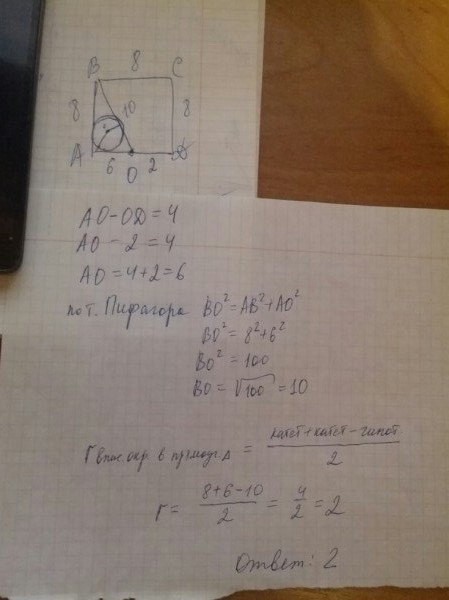 B 8 C
8 10 8
A 6 O 2 D
AO-OD=4
AO-2=4
AO=4+2=6
по т. Пифагора BO²=AB²+AO²
BO²=8²+6²
BO²=100
BO=√100=10
r впис. окр. в прямоуг. Δ = катет+катет-гипот. / 2
r = 8+6-10 / 2 = 4/2 = 2
Ответ: 2